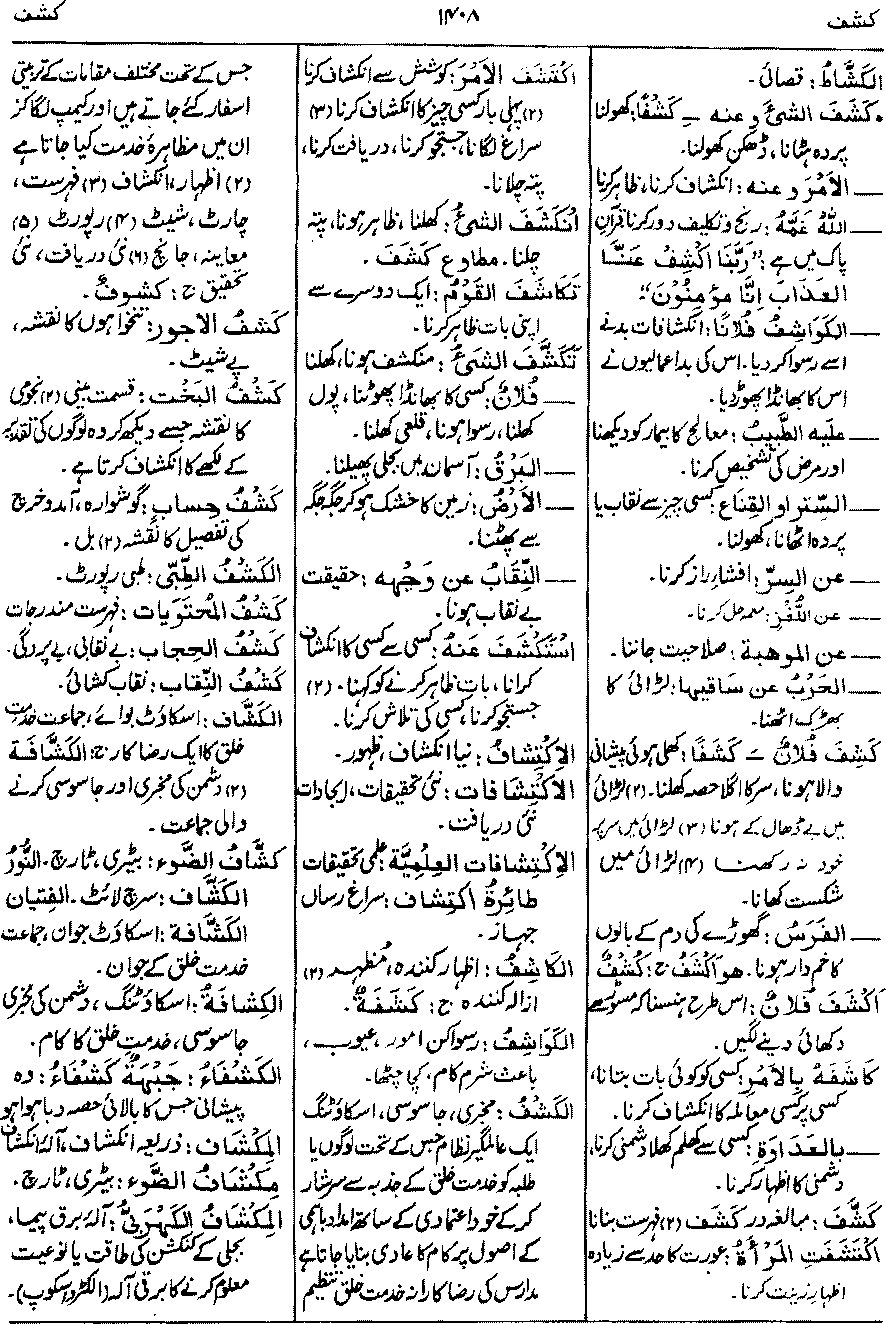 کشف
۱۴۰۸
کشف
الکَشَّاطُ: قصائی۔
•کَشَفَ الشیءَ وعنه ـِ کَشْفًا: کھولنا
پردہ ہٹانا، ڈھکن کھولنا۔
— الأمْرَ وعنه: انکشاف کرنا، ظاہر کرنا
— اللّٰهُ غَمَّهُ: رنج و تکلیف دور کرنا قرآن
پاک میں ہے: "رَبَّنَا اکْشِفْ عَنَّا
العَذَابَ اِنَّا مُؤْمِنُوْنَ"۔
— الکَوَاشِفُ فُلَانًا: انکشافات بد نے
اسے رسوا کر دیا۔ اس کی بد اعمالیوں نے
اس کا بھانڈا پھوڑ دیا۔
— علیه الطَّبِیبُ: معالج کا بیمار کو دیکھنا
اور مرض کی تشخیص کرنا۔
— السِّتر او القِناع: کسی چیز سے نقاب یا
پردہ اٹھانا، کھولنا۔
— عن السِرِّ: افشاءِ راز کرنا۔
— عن اللُّغْزِ: معمہ حل کرنا۔
— عن الموهبة: صلاحیت جاننا۔
— الحَرْبُ عن ساقیها: لڑائی کا
بھڑک اٹھنا۔
کَشِفَ فُلانٌ ـَ کَشَفًا: کھلی ہوئی پیشانی
والا ہونا، سر کا اگلا حصہ کھلنا۔ (۲) لڑائی
میں بے ڈھال کے ہونا (۳) لڑائی میں سر پر
خود نہ رکھنا (۴) لڑائی میں
شکست کھانا۔
— الفَرَسُ: گھوڑے کی دم کے بالوں
کا خم دار ہونا۔ هو اَکْشَفُ ج: کُشْفٌ
اَکْشَفَ فُلَانٌ: اس طرح ہنسنا کہ مسوڑھے
دکھائی دینے لگیں۔
کَاشَفَهُ بِالأمْرِ: کسی کو کوئی بات بتانا،
کسی پر کسی معاملہ کا انکشاف کرنا۔
— بِالعَدَاوَةِ: کسی سے کھلم کھلا دشمنی کرنا،
دشمنی کا اظہار کرنا۔
کَشَّفَ: مبالغہ در کَشَفَ (۲) فہرست بنانا
اکْتَشَفَتِ المَرْأَةُ: عورت کا حد سے زیادہ
اظہارِ زینت کرنا۔
اکْتَشَفَ الأمْرَ: کوشش سے انکشاف کرنا
(۲) پہلی بار کسی چیز کا انکشاف کرنا (۳)
سراغ لگانا، جستجو کرنا، دریافت کرنا،
پتہ چلانا۔
انْکَشَفَ الشیءُ: کھلنا، ظاہر ہونا، پتہ
چلنا۔ مطاوع کَشَفَ۔
تَکَاشَفَ القَوْمُ: ایک دوسرے سے
اپنی بات ظاہر کرنا۔
تَکَشَّفَ الشیءُ: منکشف ہونا، کھلنا
— فُلانٌ: کسی کا بھانڈا پھوٹنا، پول
کھلنا، رسوا ہونا، قلعی کھلنا۔
— البَرْقُ: آسمان میں بجلی پھیلنا۔
— الأرْضُ: زمین کا خشک ہو کر جگہ جگہ
سے پھٹنا۔
— النِّقَابُ عن وَجْهِه: حقیقت
بے نقاب ہونا۔
اسْتَکْشَفَ عَنهُ: کسی سے کسی کا انکشاف
کرانا، بات ظاہر کرنے کو کہنا۔ (۲)
جستجو کرنا، کسی کی تلاش کرنا۔
الاِکْتِشافُ: نیا انکشاف، ظہور۔
الاکْتِشَافات: نئی تحقیقات، ایجادات
نئی دریافت۔
الاِکْتِشافات العِلْمِیَّة: علمی تحقیقات
طائِرةُ اکتِشاف: سراغ رساں
جہاز۔
الکَاشِفُ: اظہار کنندہ، مُظہِر (۲)
ازالہ کنندہ ج: کَشَفَةٌ۔
الکَوَاشِفُ: رسوا کن امور، عیوب،
باعث شرم کام، کچا چٹھا۔
الکَشْفُ: مخبری، جاسوسی، اسکاؤٹنگ
ایک عالمگیر نظام جس کے تحت لوگوں یا
طلبہ کو خدمت خلق کے جذبہ سے سرشار
کر کے خود اعتمادی کے ساتھ امداد باہمی
کے اصول پر کام کا عادی بنایا جاتا ہے
مدارس کی رضا کارانہ خدمت خلق تنظیم
جس کے تحت مختلف مقامات کے تربیتی
اسفار کئے جاتے ہیں اور کیمپ لگا کر
ان میں مظاہرۂ خدمت کیا جاتا ہے
(۲) اظہار، انکشاف (۳) فہرست،
چارٹ، شیٹ (۴) رپورٹ (۵)
معاینہ، جانچ (۶) نئی دریافت، نئی
تحقیق ج: کشوفٌ۔
کَشفُ الاجور: تنخواہوں کا نقشہ،
پے شیٹ۔
کَشْفُ البَخْت: قسمت بینی (۲) نجومی
کا نقشہ جسے دیکھ کر وہ لوگوں کی تقدیر
کے لکھے کا انکشاف کرتا ہے۔
کَشْفُ حِسابٍ: گوشوارہ، آمد و خرچ
کی تفصیل کا نقشہ (۲) بل۔
الکَشْفُ الطِّبِّی: طبی رپورٹ۔
کَشْفُ المُحْتَوَیات: فہرست مندرجات
کَشْفُ الحِجاب: بے نقابی، بے پردگی۔
کَشْفُ النِّقاب: نقاب کشائی۔
الکَشَّاف: اسکاؤٹ بوائے، جماعت خدمت
خلق کا ایک رضا کار ج: الکَشَّافَة
(۲) دشمن کی مخبری اور جاسوسی کرنے
والی جماعت۔
کَشَّافُ الضَّوء: بیٹری، ٹارچ۔ النُّوْرُ
الکَشَّاف: سرچ لائٹ۔ الفِتیان
الکَشَّافة: اسکاؤٹ جوان، جماعت
خدمت خلق کے جوان۔
الکِشافَةُ: اسکاؤٹنگ، دشمن کی مخبری
جاسوسی، خدمت خلق کا کام۔
الکَشْفَاءُ: جَبْهَةٌ کَشْفَاءُ: وہ
پیشانی جس کا بالائی حصہ دبا ہوا ہو
المِکْشَاف: ذریعہ انکشاف، آلۂ انکشاف
مِکْشَافُ الضَّوء: بیٹری، ٹارچ۔
المِکْشَافُ الکَهْرَبِیُّ: آلۂ برق پیما،
بجلی کے کنکشن کی طاقت یا نوعیت
معلوم کرنے کا برقی آلہ (الکٹرو اسکوپ)۔